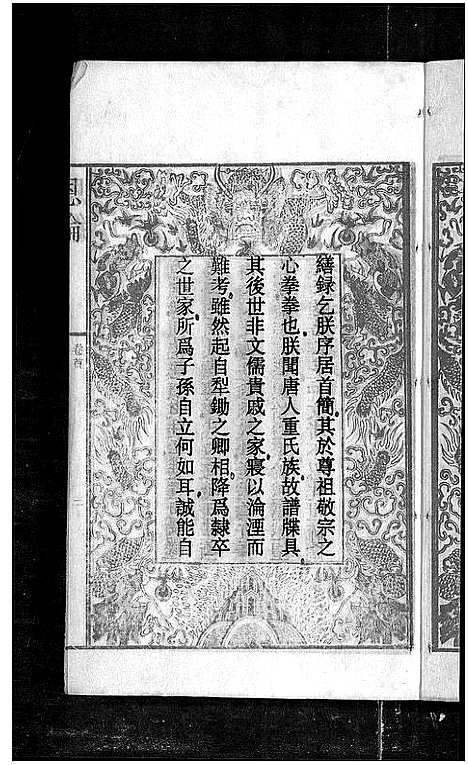 繕録乞朕序居首簡其於尊祖敬宗之
心拳拳也朕聞唐人重氏族故譜牒具
其後世非文儒貴戚之家寢以淪湮而
難考雖然起自犁鋤之卿相降爲隸卒
之世家所爲子孫自立何如耳誠能自
恩綸
卷首
二